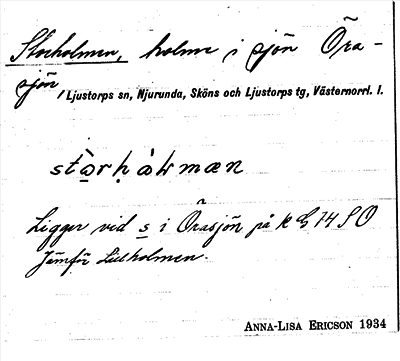 Storholmen, holme i sjön Öra-
sjön, Ljustorps sn, Njurunda, Sköns och Ljustorps tg, Västernorrl. l.
stò̱rḥàɫmæn
Ligger vid s i Örasjön på k G 14 S O
Jämför Lillholmen.
ANNA-LISA ERICSON 1934